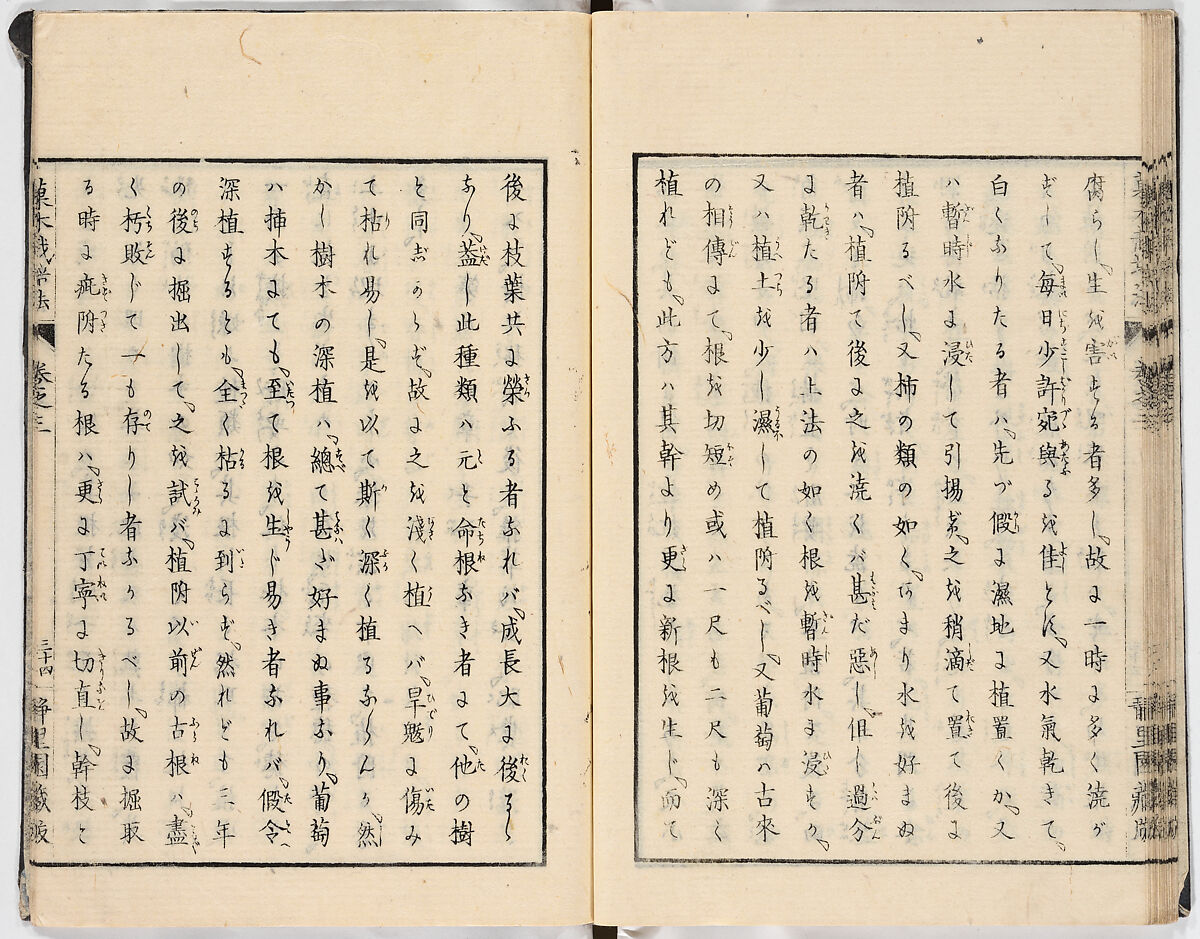 腐らし、生を害する者多し、故に一時に多く澆が
ずして、毎日少許宛與るを佳とす、又水氣乾きて、
白くなりたる者ハ、先づ假に濕地に植置くか、又
ハ暫時水に浸して引揚げ、之を稍滴て置て後に
植附るべし、又柿の類の如く、あまり水を好まぬ
者ハ、植附て後に之を澆くが甚だ惡し、但し過分
に乾たる者ハ上法の如く根を暫時水に浸すか、
又ハ植土を少し濕して植附るべし、又葡萄ハ古來
の相傳にて、根を切短め或ハ一尺も二尺も深く
植れども、此方ハ其幹より更に新根を生じ、而て
後に枝葉共に榮ふる者なれバ、成長大に後るゝ
なり、蓋し此種類ハ元と命根なき者にて、他の樹
と同じからず、故に之を淺く植へバ、旱魃に傷み
て枯れ易し、是を以て斯く深く植るならんか、然
かし樹木の深植ハ、總て甚だ好まぬ事なり、葡萄
ハ挿木にても、至て根を生じ易き者なれバ、假令
深植するとも、全く枯るに到らず、然れども三年
の後に掘出して、之を試バ、植附以前の古根ハ、盡
く朽敗じて一も存りし者なかるべし、故に掘取
る時に疵附たる根ハ、更に丁寧に切直し、幹枝と
菓木栽培法 卷之三 三十四